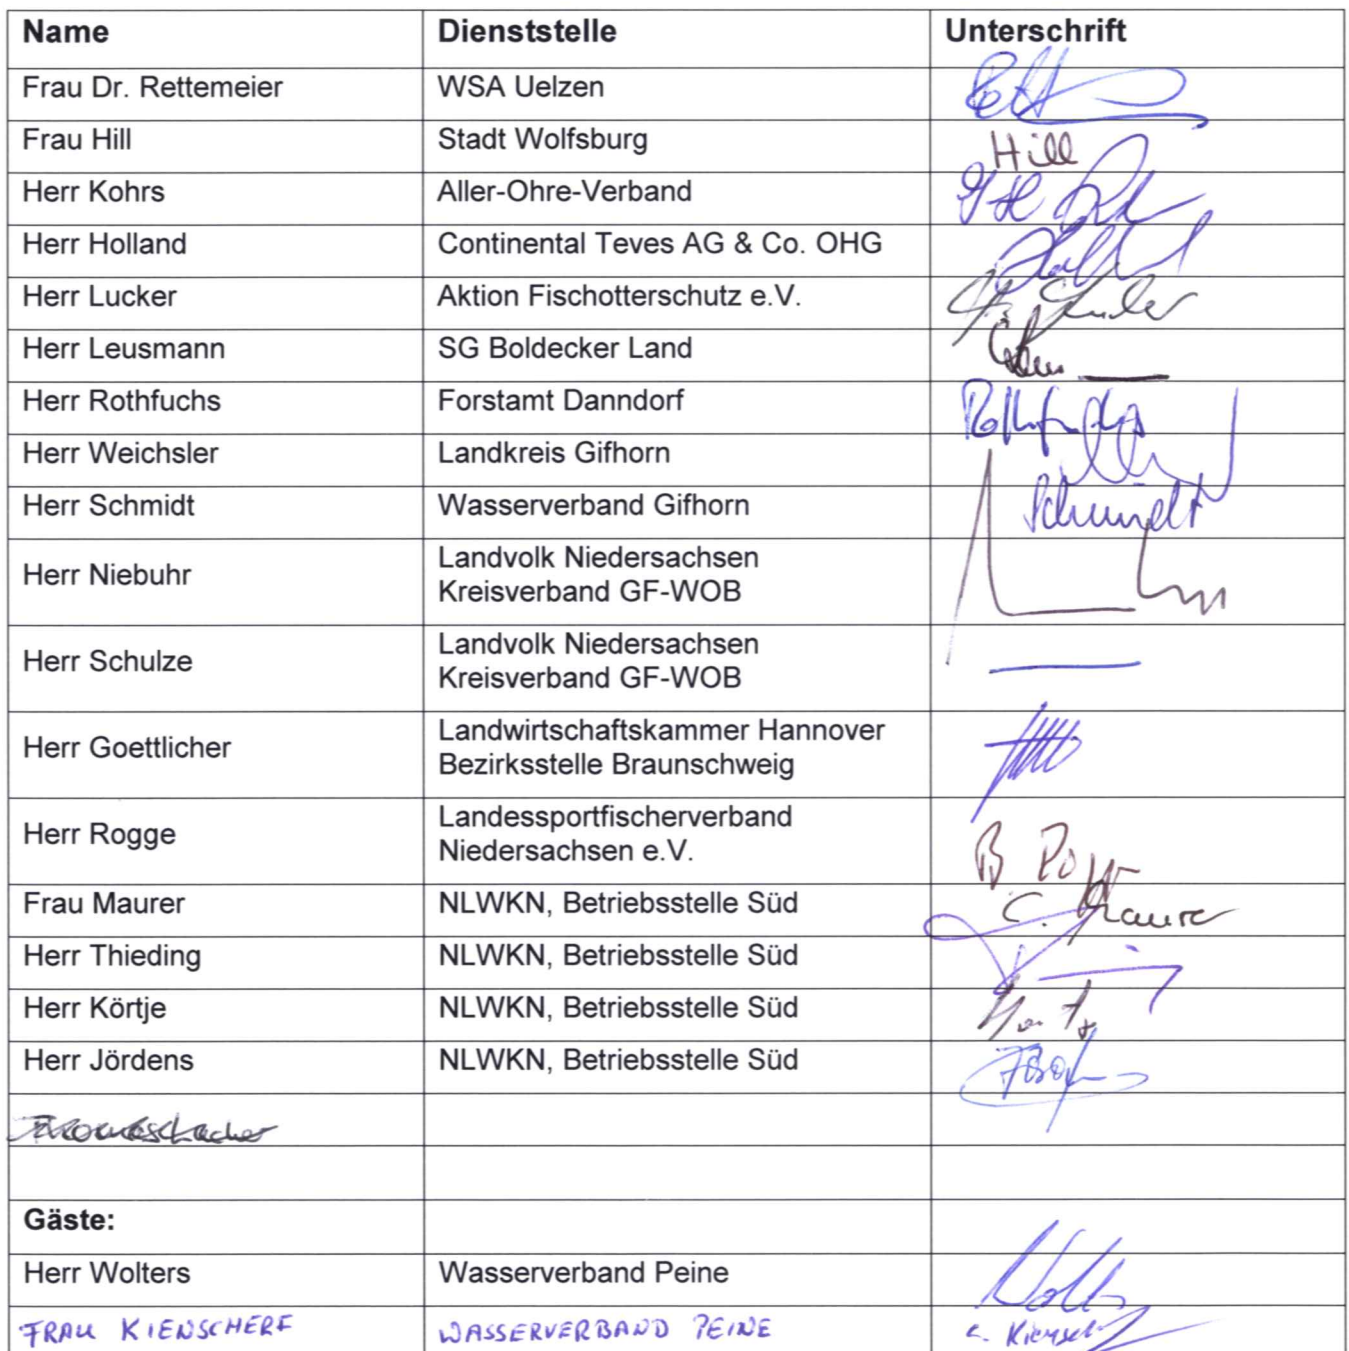 Name Dienststelle Unterschrift
Frau Dr. Rettemeier WSA Uelzen
Frau Hill Stadt Wolfsburg Hill
Herr Kohrs Aller-Ohre-Verband
Herr Holland Continental Teves AG & Co. OHG
Herr Lucker Aktion Fischotterschutz e.V.
Herr Leusmann SG Boldecker Land
Herr Rothfuchs Forstamt Danndorf Rothfuchs
Herr Weichsler Landkreis Gifhorn
Herr Schmidt Wasserverband Gifhorn Schmidt
Herr Niebuhr Landvolk Niedersachsen
Kreisverband GF-WOB
Herr Schulze Landvolk Niedersachsen
Kreisverband GF-WOB
Herr Goettlicher Landwirtschaftskammer Hannover
Bezirksstelle Braunschweig
Herr Rogge Landessportfischerverband
Niedersachsen e.V.
Frau Maurer NLWKN, Betriebsstelle Süd C. Maurer
Herr Thieding NLWKN, Betriebsstelle Süd
Herr Körtje NLWKN, Betriebsstelle Süd
Herr Jördens NLWKN, Betriebsstelle Süd
Gäste:
Herr Wolters Wasserverband Peine
FRAU KIENSCHERF WASSERVERBAND PEINE